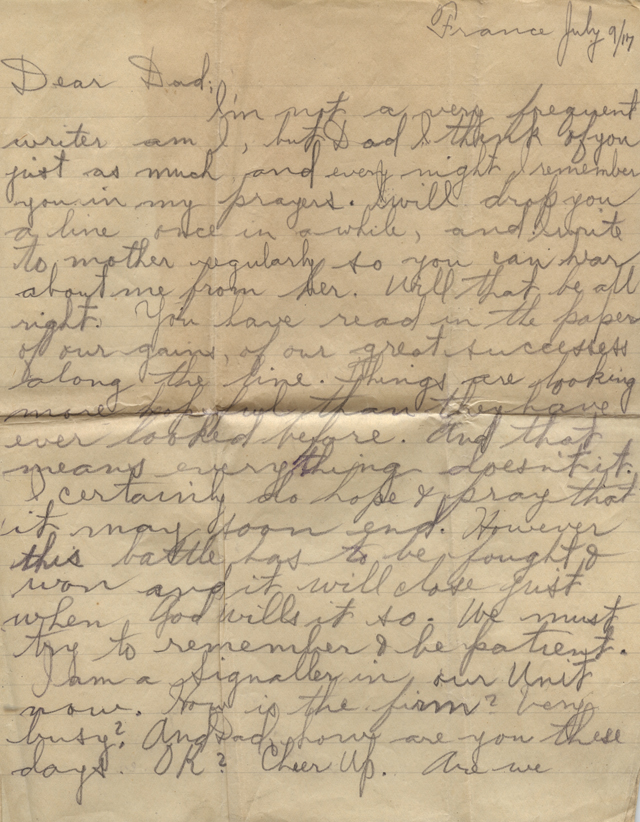 France July 9/17
Dear Dad;
I'm not a very frequent
writer am I, but Dad I think of you
just as much and every night I remember
you in my prayers. I will drop you
a line once in a while, and write
to mother regularly so you can hear
about me from her. Will that be all
right. You have read in the paper
of our gains, of our great successes
along the line. Things are looking
more hopeful than they have
ever looked before. And that
means everything doesn't it.
I certainly do hope & pray that
it may soon end. However
this battle has to be fought &
won and it will close just
when God wills it so. We must
try to remember & be patient.
I am a Signaller in our Unit
now. How is the firm? Very
busy? And Dad how are you these
days. OK? Cheer Up. Are we